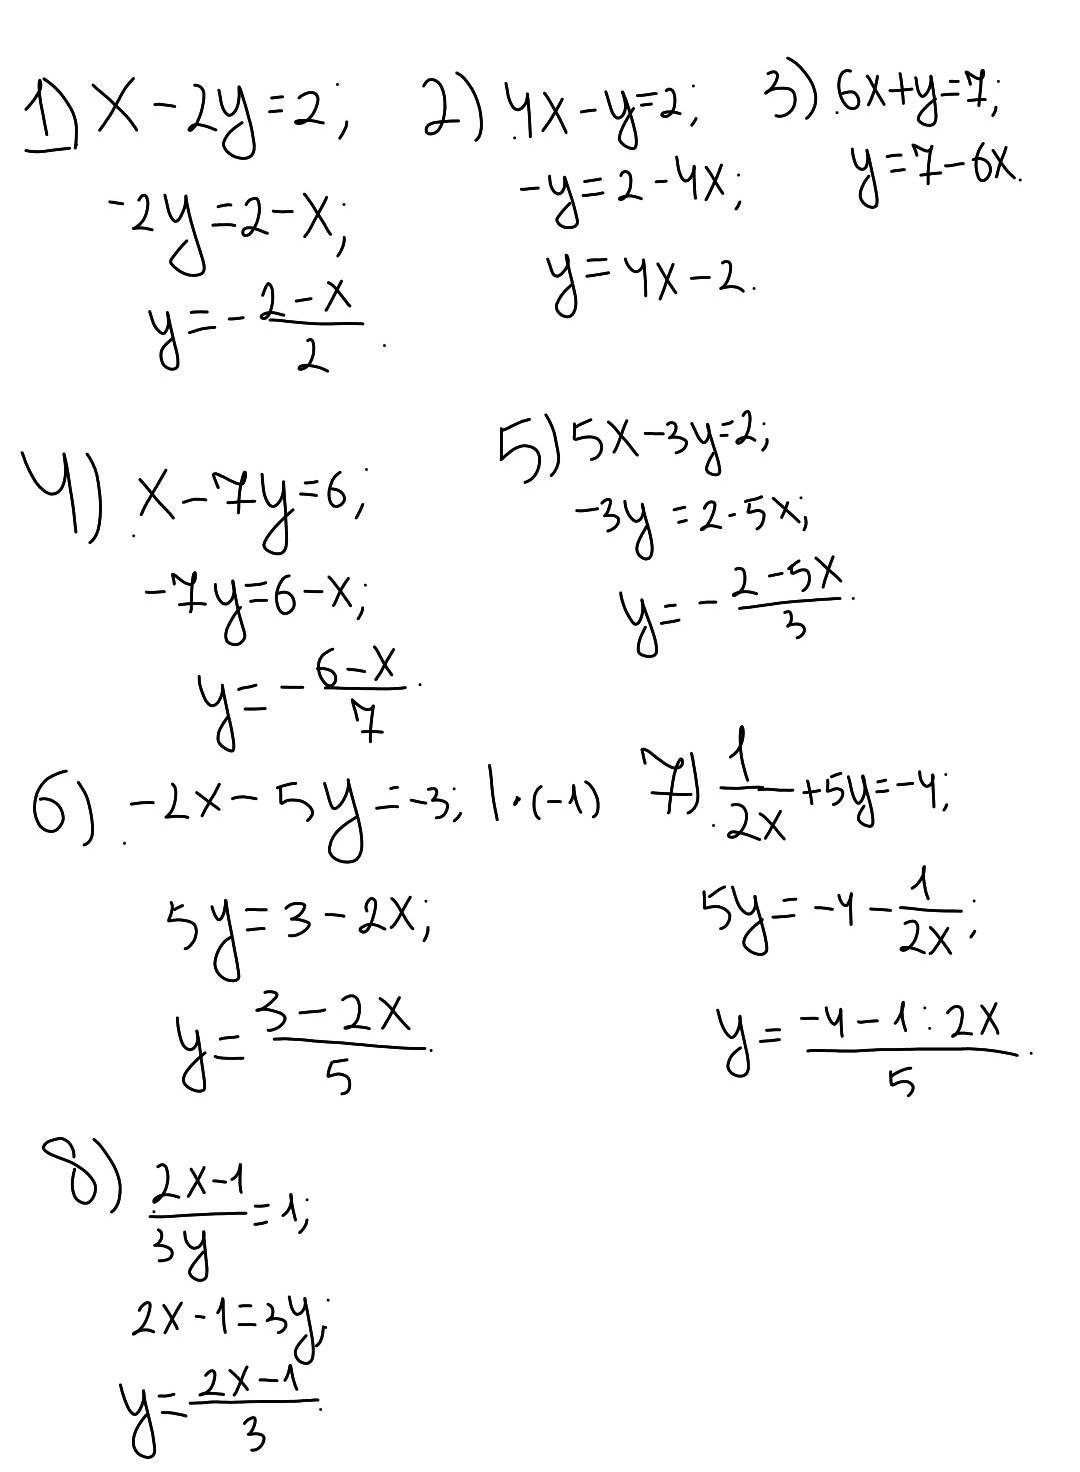 1) x - 2y = 2;
-2y = 2 - x;
y = - (2 - x)/2.
2) 4x - y = 2;
-y = 2 - 4x;
y = 4x - 2.
3) 6x + y = 7;
y = 7 - 6x.
4) x - 7y = 6;
-7y = 6 - x;
y = - (6 - x)/7.
5) 5x - 3y = 2;
-3y = 2 - 5x;
y = - (2 - 5x)/3.
6) -2x - 5y = -3; | · (-1)
5y = 3 - 2x;
y = (3 - 2x)/5.
7) 1/(2x) + 5y = -4;
5y = -4 - 1/(2x);
y = (-4 - 1 : 2x)/5.
8) (2x - 1)/(3y) = 1;
2x - 1 = 3y;
y = (2x - 1)/3.